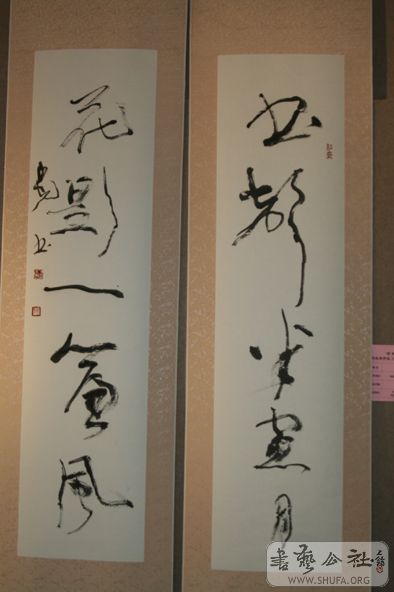 书聲半窗月
花影一簾風
書藝公社
WWW.SHUFA.ORG